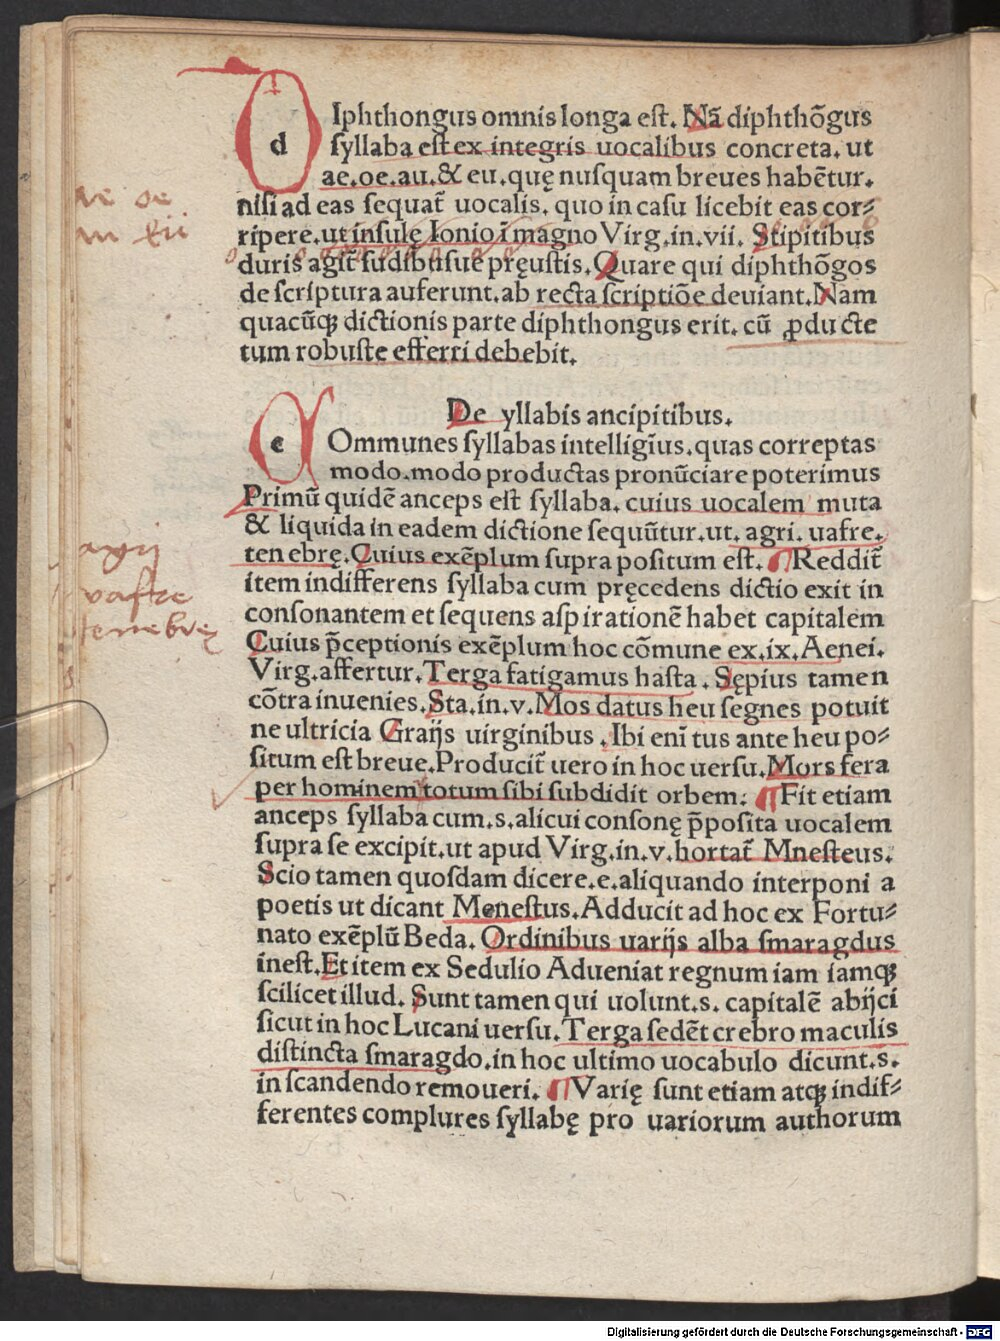 d Iphthongus omnis longa est. Nã diphthõgus
syllaba est ex integris uocalibus concreta. ut
ae. oe. au. & eu. quę nusquam breues habẽtur.
nisi ad eas sequat̃ uocalis. quo in casu licebit eas cor⸗
ripere. ut insulę Ionio ĩ magno Virg. in. vii. Stipitibus
duris agit̃ sudibusue pręustis. Quare qui diphthõgos
de scriptura auferunt. ab recta scriptiõe deuiant. Nam
quacũqꝫ dictionis parte diphthongus erit. cũ ꝓducte
tum robuste efferri debebit.
De yllabis ancipitibus.
c Ommunes syllabas intelligĩus. quas correptas
modo. modo productas pronũciare poterimus
Primũ quidẽ anceps est syllaba. cuius uocalem muta
& liquida in eadem dictione sequũtur. ut. agri. uafre.
ten ebrę. Cuius exẽplum supra positum est. ¶ Reddit̃
item indifferens syllaba cum pręcedens dictio exit in
consonantem et sequens aspirationẽ habet capitalem
Cuius p̃ceptionis exẽplum hoc cõmune ex. ix. Aenei.
Virg. affertur. Terga fatigamus hasta. Sępius tamen
cõtra inuenies. Sta. in. v. Mos datus heu segnes potuit
ne ultricia Graijs uirginibus. Ibi enĩ tus ante heu po⸗
situm est breue. Producit̃ uero in hoc uersu. Mors fera
per hominem totum sibi subdidit orbem: ¶ Fit etiam
anceps syllaba cum. s. alicui consonę p̃posita uocalem
supra se excipit. ut apud Virg. in. v. hortat̃ Mnesteus.
Scio tamen quosdam dicere. e. aliquando interponi a
poetis ut dicant Menestus. Adducit ad hoc ex Fortu⸗
nato exẽplũ Beda. Ordinibus uarijs alba smaragdus
inest. Et item ex Sedulio Adueniat regnum iam iamqꝫ
scilicet illud. Sunt tamen qui uolunt. s. capitalẽ abijci
sicut in hoc Lucani uersu. Terga sedẽt crebro maculis
distincta smaragdo. in hoc ultimo uocabulo dicunt. s.
in scandendo remoueri. ¶ Varię sunt etiam atqꝫ indif⸗
ferentes complures syllabę pro uariorum authorum
agri
vafre
tenebrę
Digitalisierung gefördert durch die Deutsche Forschungsgemeinschaft - DFG